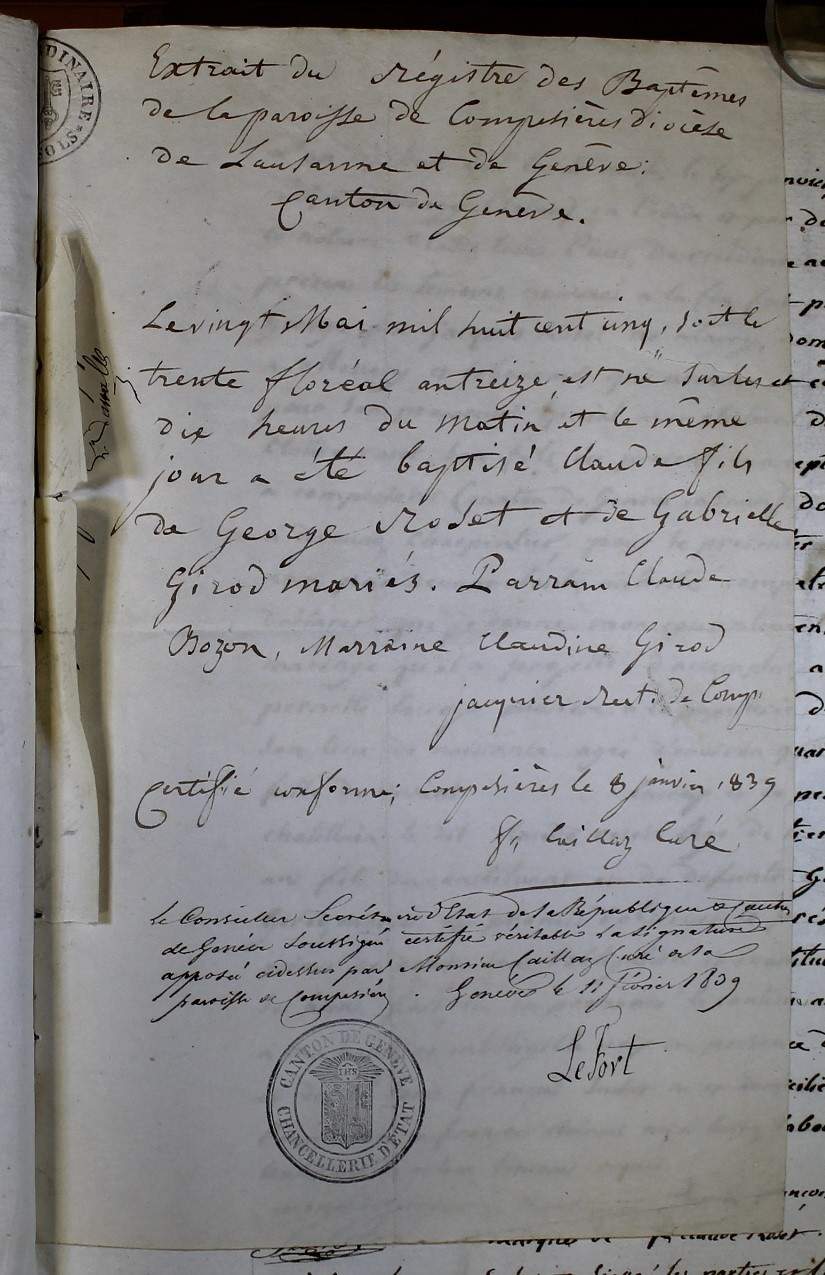 Extrait du régistre des Baptêmes
de la paroisse de Compesières diocèse
de Lausanne et de Genève.
Canton de Genève.
Le vingt Mai mil huit cent cinq, soit le
trente floréal an treize, est né sur les
dix heures du matin, et le même
jour a été baptisé Claude fils
de George Roset et de Gabrielle
Girod mariés. Parrain Claude
Bozon, Marraine Claudine Girod
jacquier rect. de Comp.
Certifié conforme; Compesières le 8 janvier 1839
Caillaz Curé
Le Conseiller Secrétaire d'Etat de la République & Canton
de Genève soussigné certifie véritable la signature
apposée cidessus par Monsieur Caillaz Curé de la
paroisse de Compesières. Genève le 11 février 1839
LeFort
CANTON DE GENÈVE
IHS
CHANCELLERIE D'ÉTAT
DINAIRE
OLS